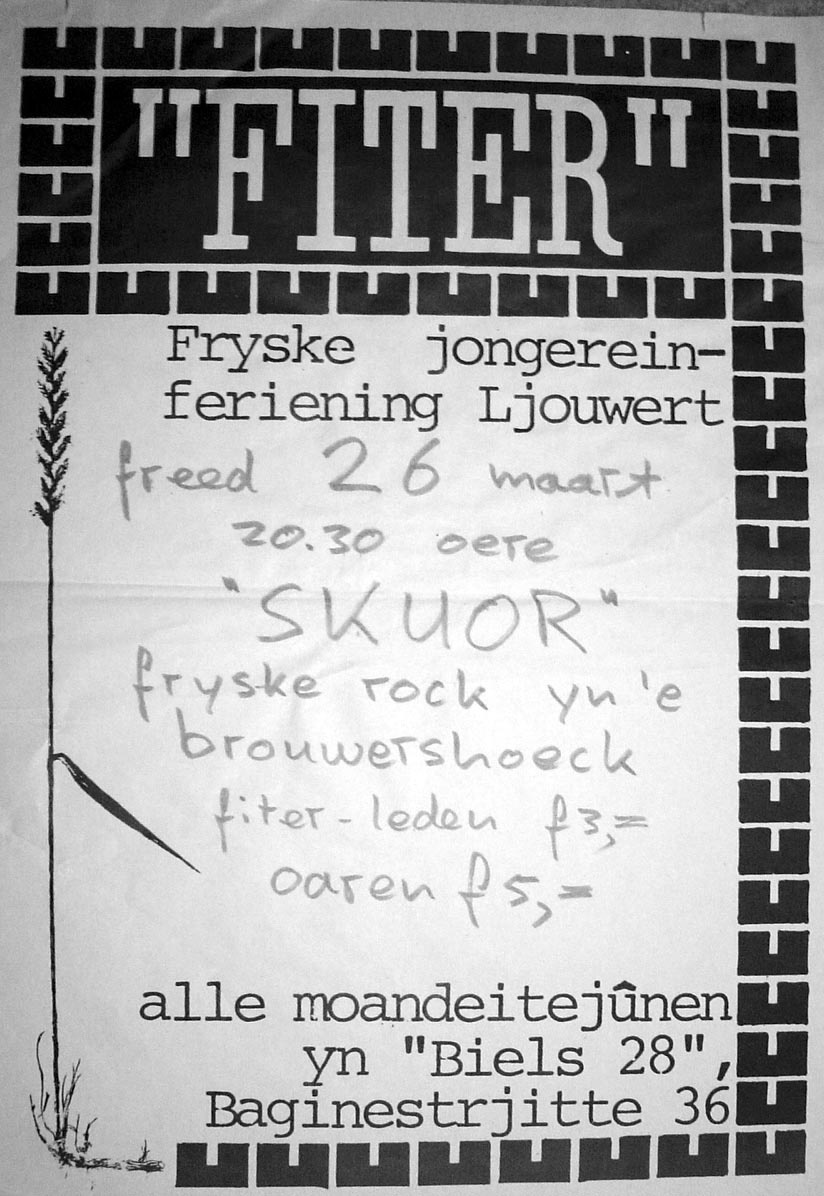 "FITER"
Fryske jongerein-
feriening Ljouwert
freed 26 maart
20.30 oere
"SKUOR"
fryske rock yn 'e
brouwershoeck
fiter-leden f 3,=
oaren f 5,=
alle moandeitejûnen
yn "Biels 28",
Baginestrjitte 36